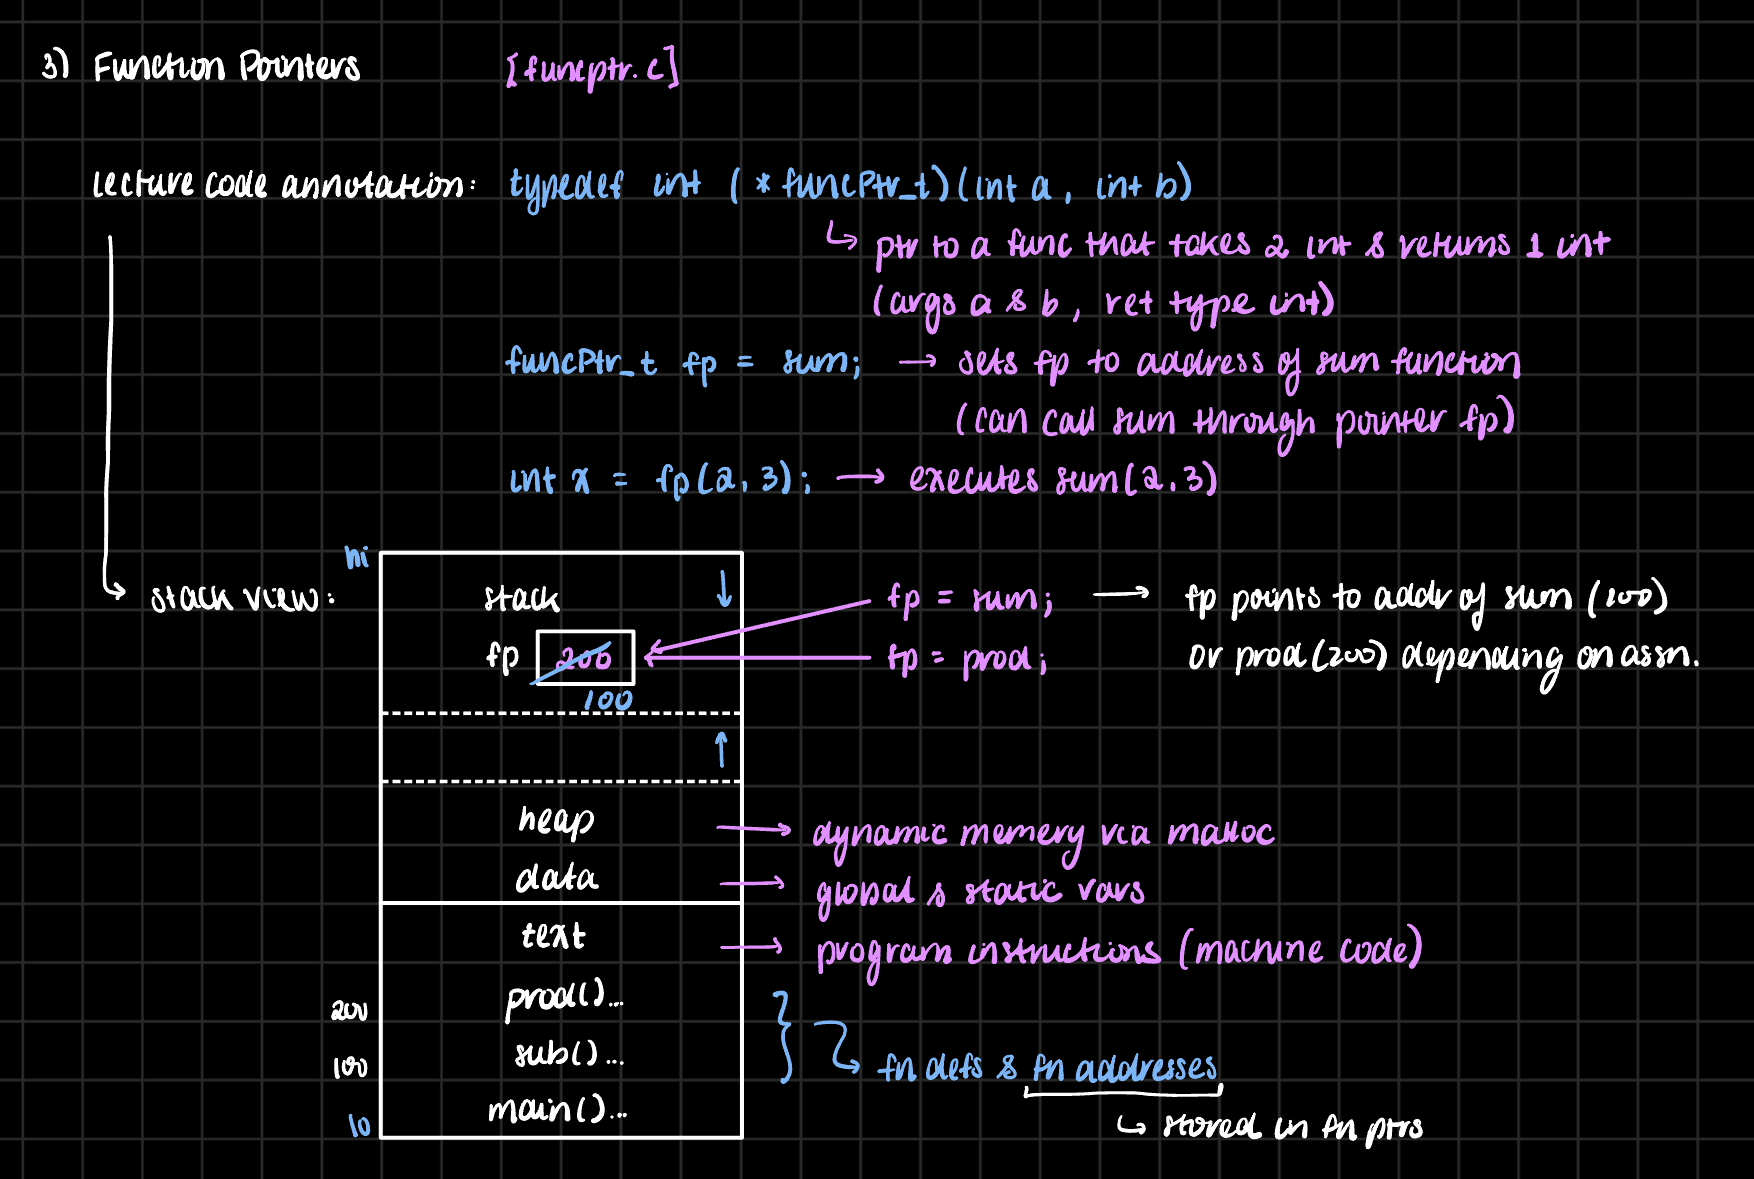 3) Function Pointers [funcptr.c]
lecture code annotation: typedef int (*funcPtr_t)(int a, int b)
↳ ptr to a func that takes 2 int & returns 1 int
(args a & b, ret type int)
funcPtr_t fp = sum; → sets fp to address of sum function
(can call sum through pointer fp)
int x = fp(2,3); → executes sum(2,3)
hi
stack view: stack ↓ fp = sum; → fp points to addr of sum (100)
fp 200 fp = prod; or prod(200) depending on assn.
100
↑
heap → dynamic memery via malloc
data → global & static vars
text → program instructions (machine code)
200 prod()...
100 sub()... fn defs & fn addresses
lo main()... ↳ stored in fn ptrs